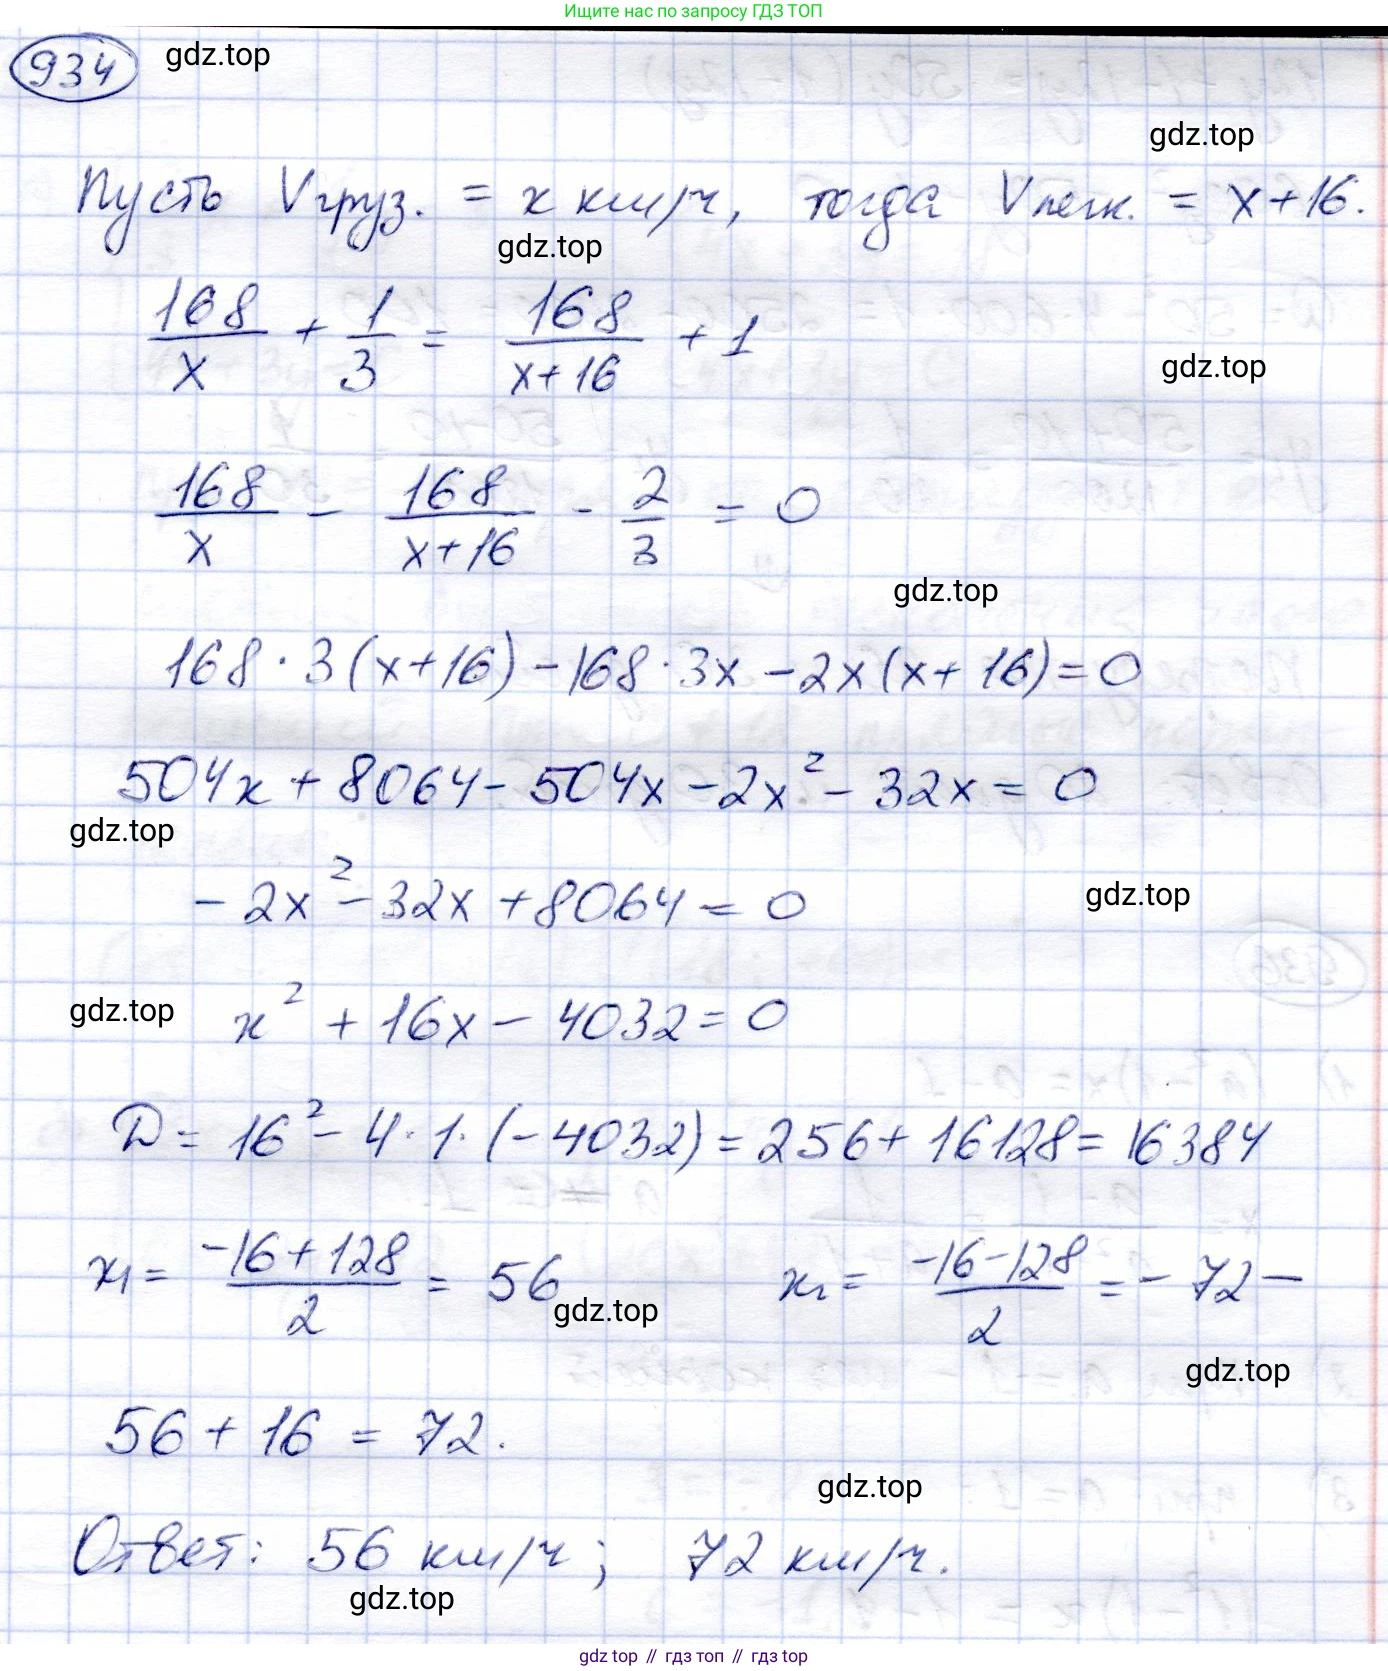 Ищите нас по запросу ГДЗ ТОП
934 gdz.top
gdz.top
Пусть Vгруз. = x км/ч, тогда Vлегк. = x+16.
gdz.top
168/x + 1/3 = 168/(x+16) + 1
gdz.top
168/x - 168/(x+16) - 2/3 = 0
gdz.top
168·3(x+16)-168·3x-2x(x+16)=0
504x+8064-504x-2x²-32x=0
gdz.top
-2x²-32x+8064=0
gdz.top
gdz.top x²+16x-4032=0
D=16²-4·1·(-4032)=256+16128=16384
x₁=(-16+128)/2=56 x₂=(-16-128)/2=-72 —
gdz.top
gdz.top
56+16=72.
gdz.top
Ответ: 56 км/ч; 72 км/ч.
gdz.top
gdz.top // гдз топ // гдз top